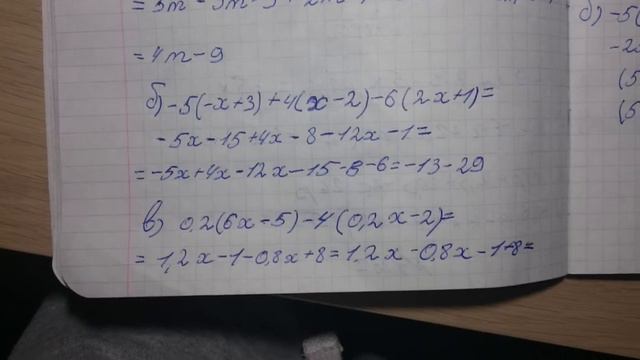 = 4m - 9
б) -5(-x+3)+4(x-2)-6(2x+1)=
-5x-15+4x-8-12x-1=
=-5x+4x-12x-15-8-6=-13-29
в) 0,2(6x-5)-4(0,2x-2)=
= 1,2x-1-0,8x+8=1,2x-0,8x-1+8=
б) -5(
-2
(5
(5